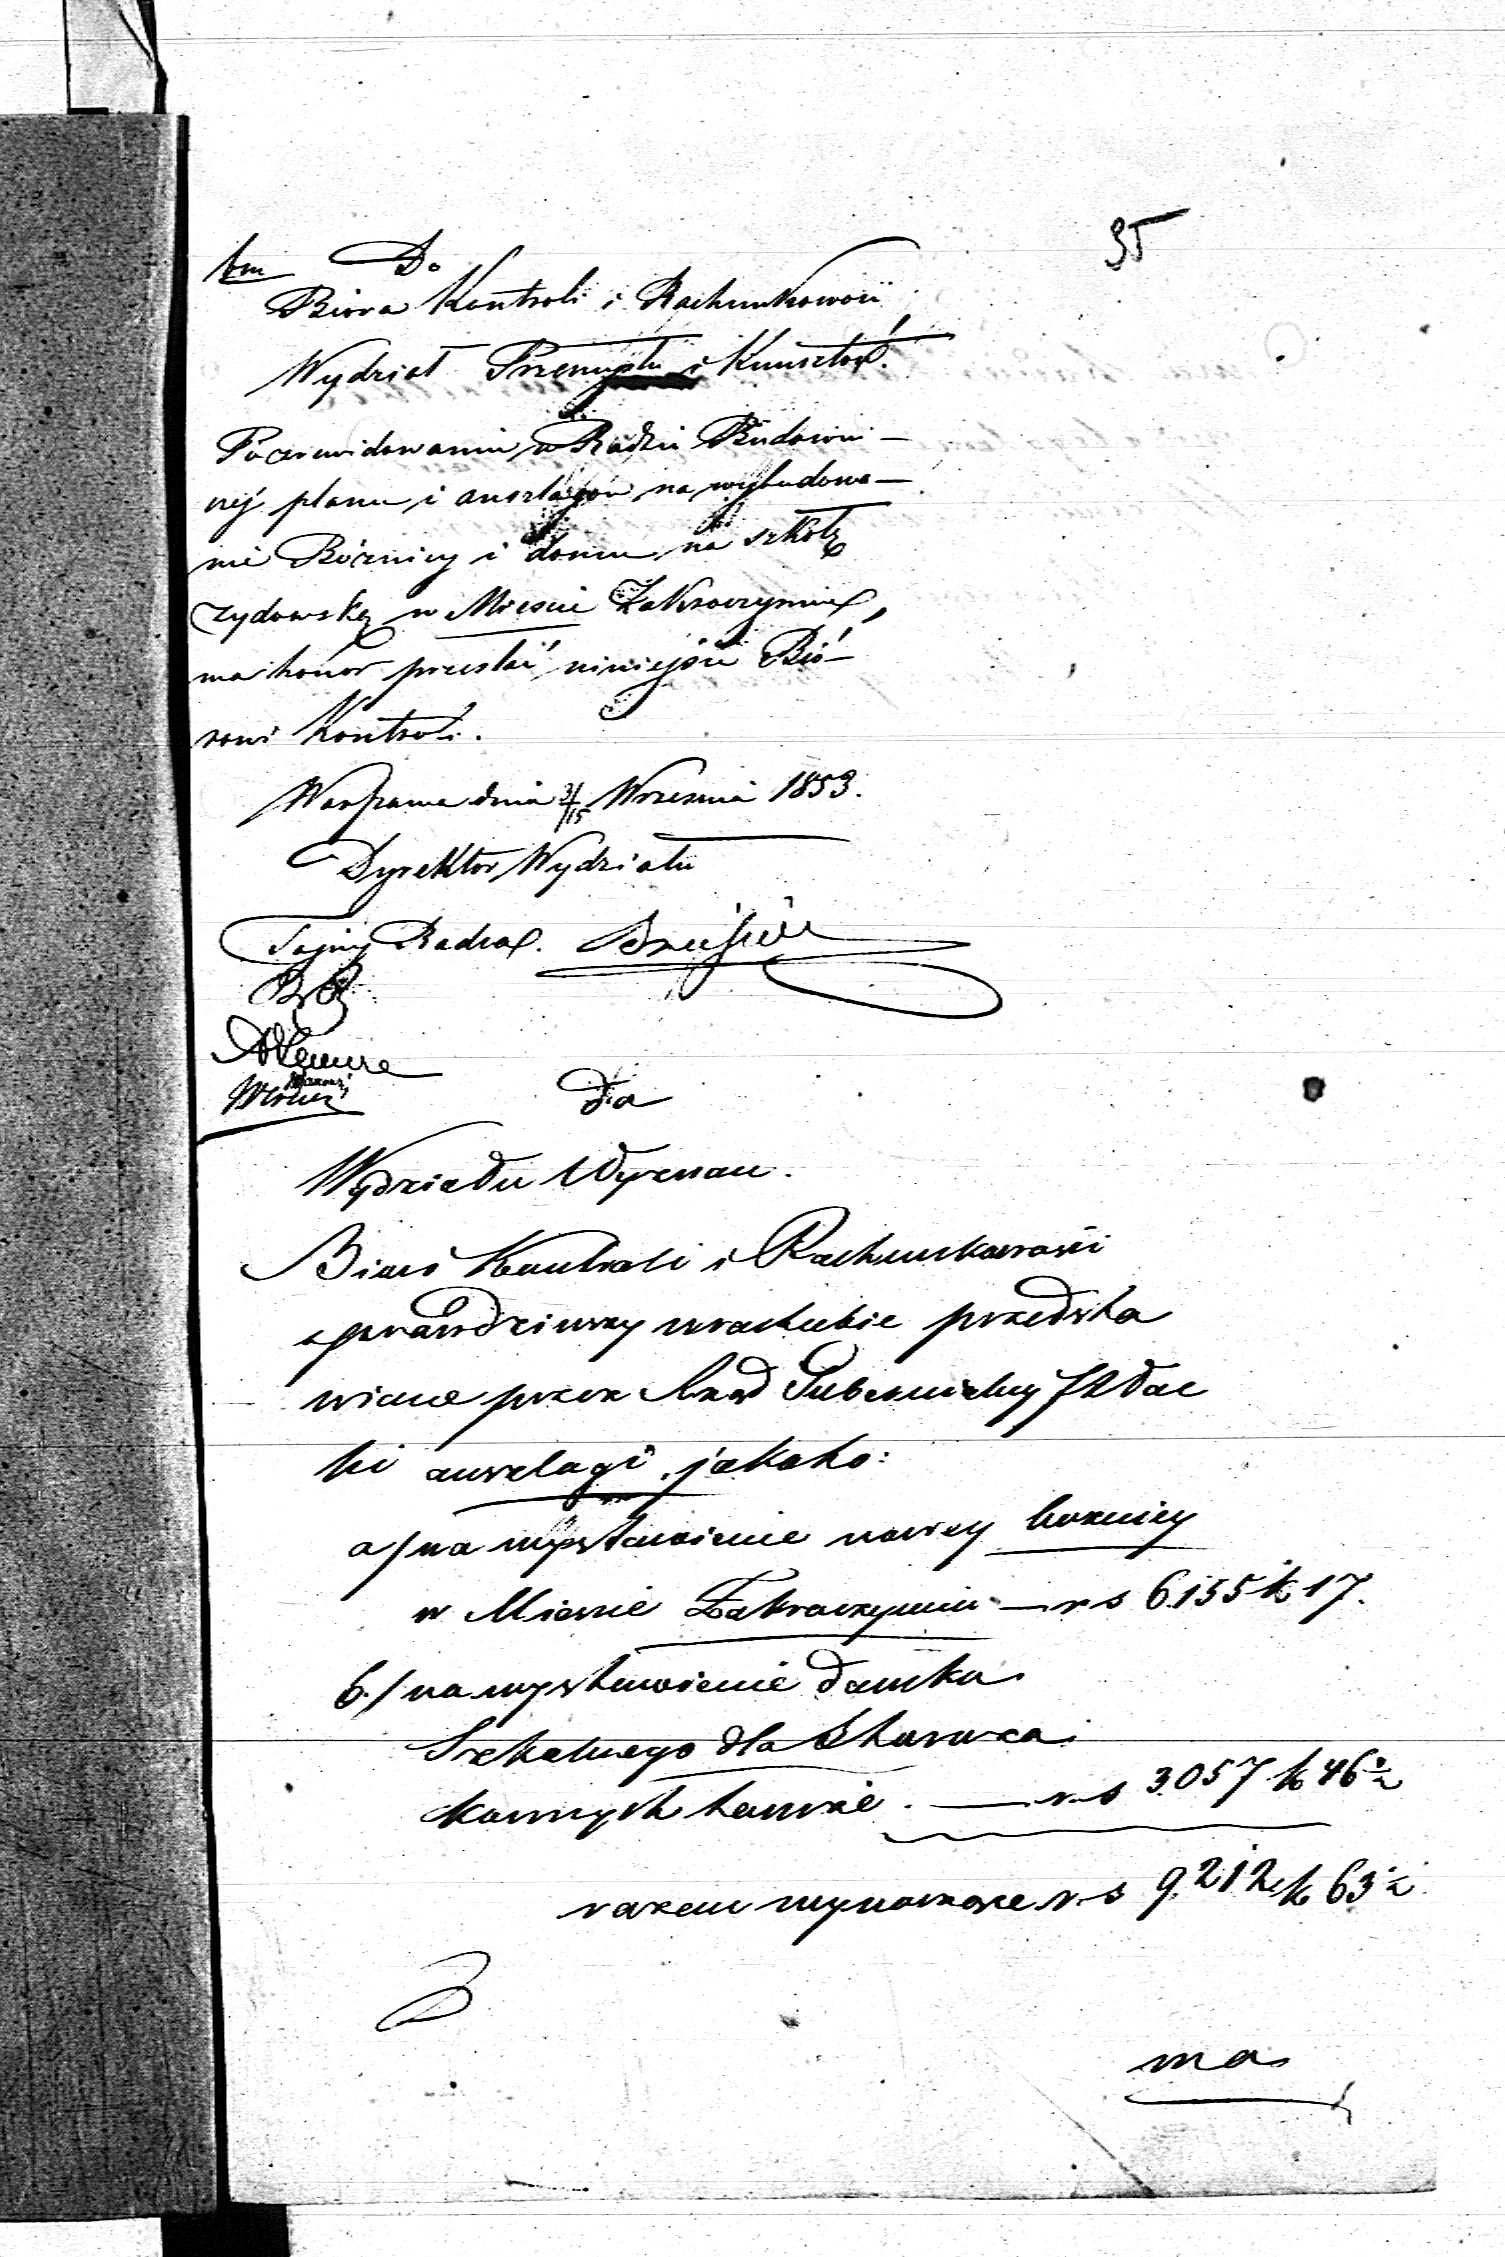 35
Do
Biora Kontroli i Rachunkowości
Wydział Przemysłu i Kunsztów.
Po zrewidowaniu w Radzie Budowni-
nej planu i anszlagów na wybudowa-
nie Bóżnicy i domu na szkołę
żydowską w Mieście Zakroczymiu,
ma honor przesłać niniejsze Bió-
rowi Kontroli.
Warszawa dnia 3/15 Września 1853.
Dyrektor Wydziału
Tajny Radca.
Do
Wydziału Wyznań.
Biuro Kontroli i Rachunkowości
sprawdziwszy w rachubie przedsta
wione przez Rząd Gubernialny Płoc
ki anszlagi, jakoto:
a/ na wystawienie nowey bożnicy
w Mieście Zakroczymiu — r s 6155 k 17.
b./ na wystawienie domku
Szkolnego dla Staroza
konnych tamże. — r s 3057 k 46 ½
razem wynoszące r. s 9,212 k 63 ½
ma